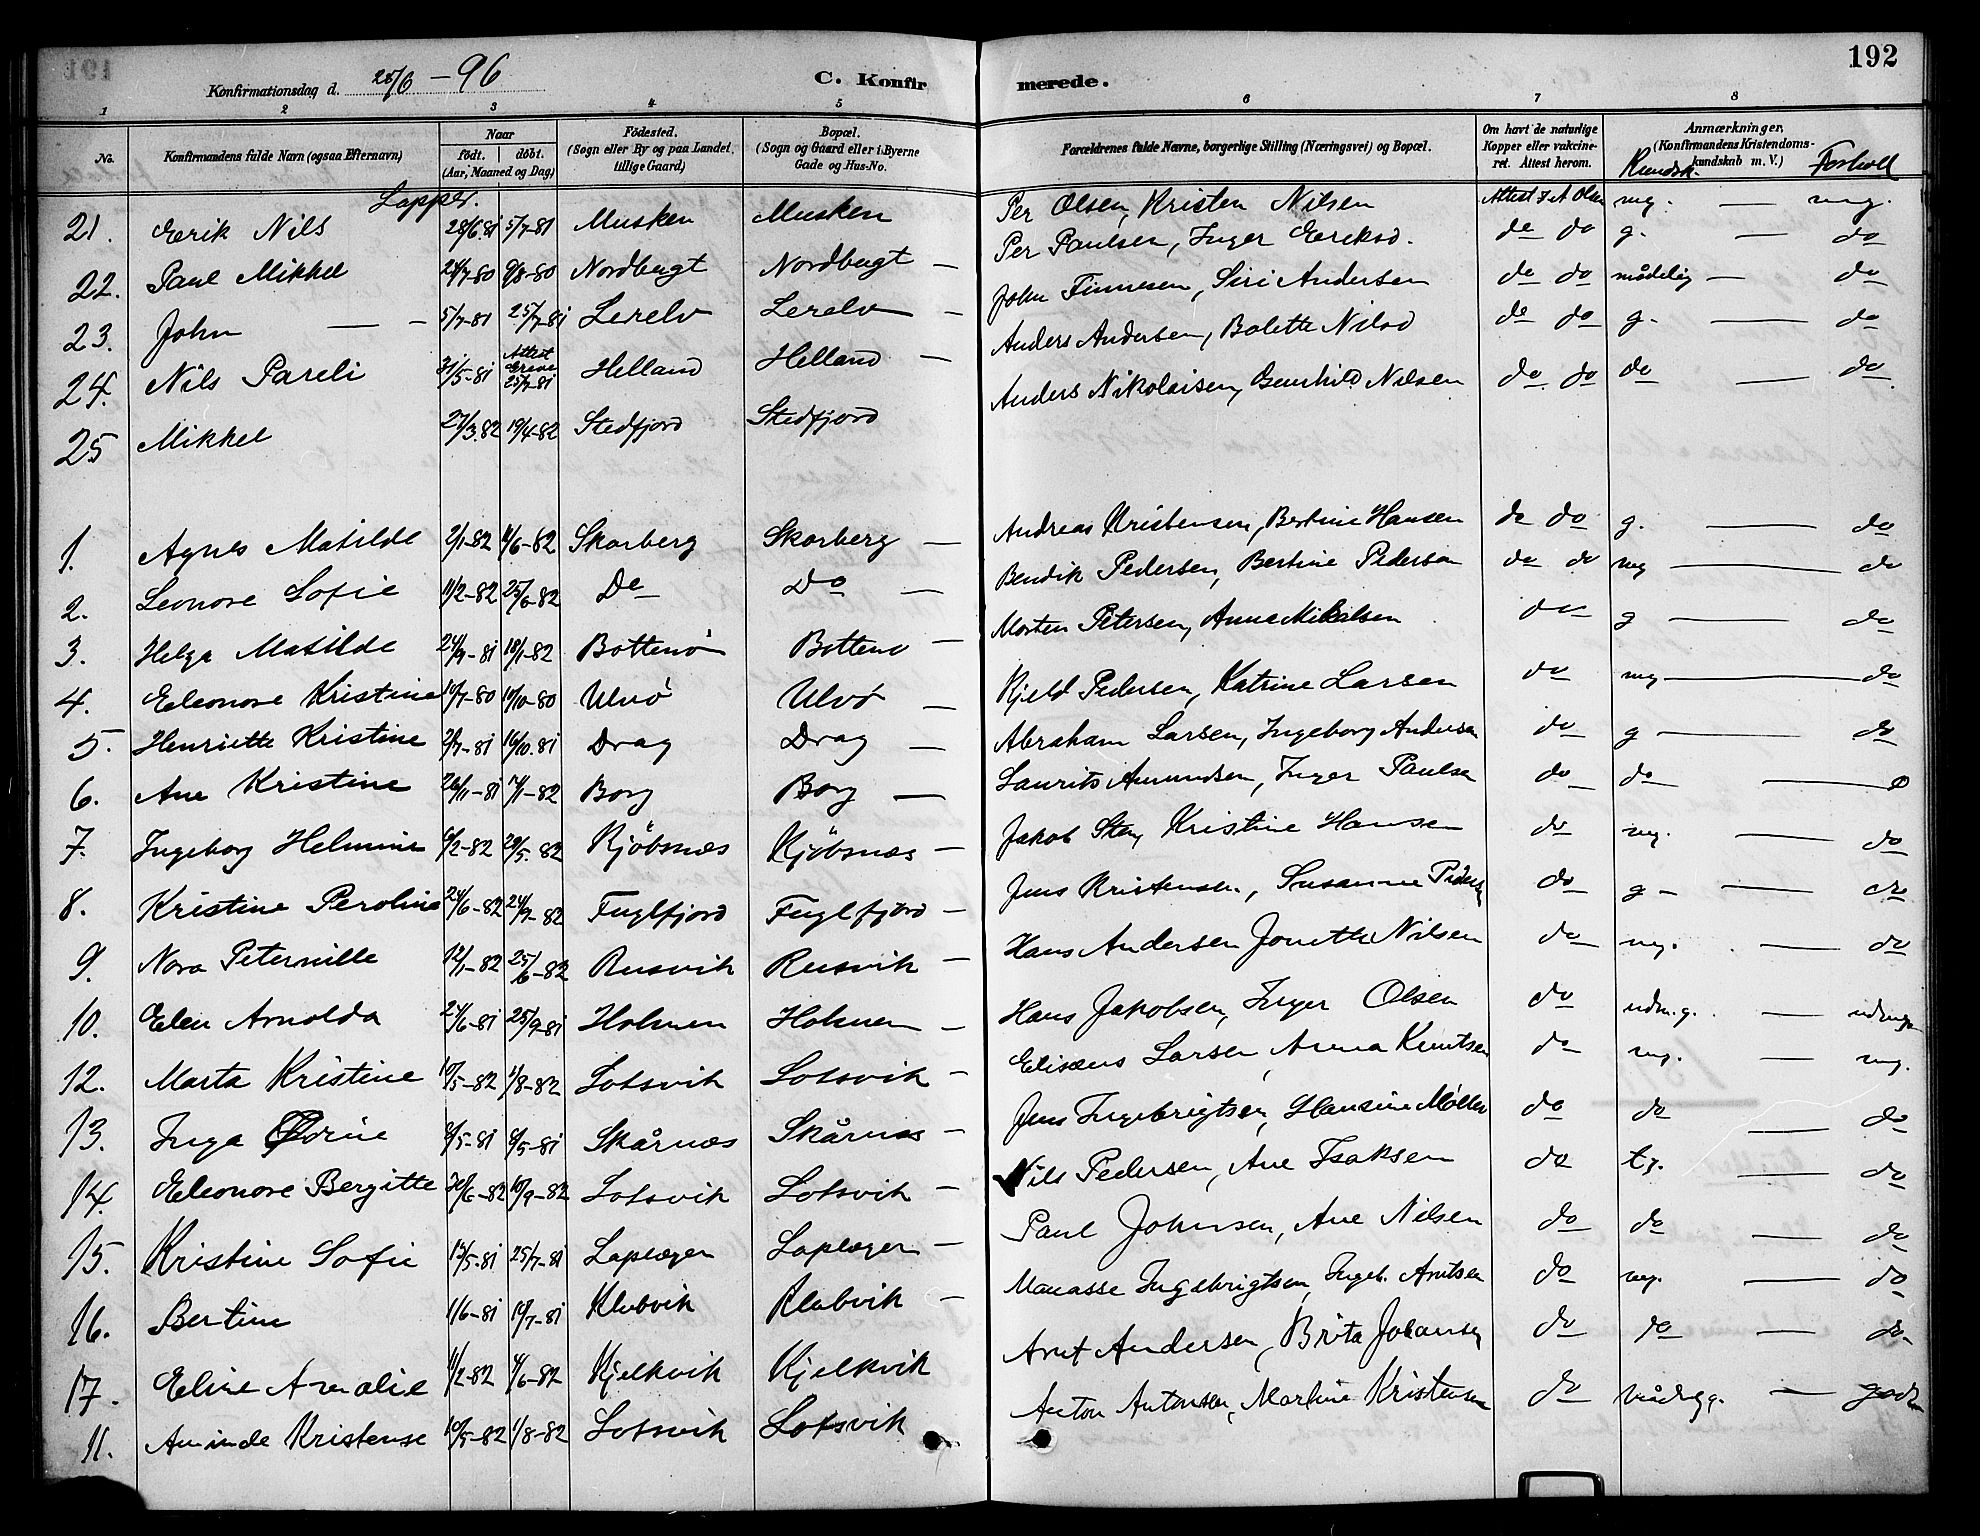 192
Konfirmationsdag d. 28/6 - 96
C. Konfirmerede.
1 2 3 4 5 6 7 8
No. Konfirmandens fulde Navn (ogsaa Efternavn) Naar født. døbt. (Aar, Maaned og Dag) Fødested. (Sogn eller By og paa Landet, tillige Gaard) Bopæl. (Sogn og Gaard eller i Byerne Gade og Hus-No. Forældrenes fulde Navne, borgerlige Stilling (Næringsvei) og Bopæl. Om havt de naturlige Kopper eller vakcineret. Attest herom. Anmærkninger. (Konfirmandens Kristendomskundskab m. V.) Kundsk. Forhold
Lapper.
21. Erik Nils 28/6 81 5/7-81 Musken Musken Per Olsen, Kristen Nilsen Attest f. A Olsen mg. — mg.
22. Paul Mikkel 24/7-80 9/8-80 Nordbugt Nordbugt — Per Paulsen, Inger Eriksd. do do g. — do
23. John — — 5/7-81 25/7-81 Lerelv Lerelv — John Finnesen, Siri Andersen do do mådelig — do
24. Nils Pareli 31/5-81 Attest 25/7-81 Helland Helland — Anders Andersen, Bolette Nilsd do do g. — do
25 Mikkel 27/3.82 19/4-82 Stedfjord Stedfjord Anders Nikolaisen, Gunhild Nilsen do do do — do
1. Agnes Matilde 2/1-82 4/6-82 Skarberg Skarberg — Andreas Kristensen, Bertine Hansen do do g. — do
2. Leonore Sofie 11/2-82 25/6-82 Do Do — Bendik Pedersen, Bertine Pedersen do do mg — do
3. Helga Matilde 24/9-81 18/1-82 Bottenø Bottenø — Morten Petersen, Anne Mikalsen do g — do
4. Eleonore Kristine 10/7-80 10/10-80 Ulvø Ulvø — Kjeld Pedersen, Katrine Larsen do mg — do
5. Henriette Kristine 2/7-81 16/10.81 Drag Drag — Abraham Larsen, Ingeborg Andersen do g — do
6. Ane Kristine 26/11-81 14/1-82 Borg Borg — Laurits Amundsen, Inger Paulsen do do —
7. Ingeborg Helmine 6/2-82 29/5.82 Kjöbsnæs Kjöbsnæs — Jakob Sten, Kristine Hansen do mg. — do
8. Kristine Peroline 24/6-82 24/9-82 Fuglfjord Fuglfjord — Jens Kristensen, Susanne Peders do g — do
9. Nora Peternille 12/1-82 25/6-82 Rusvik Rusvik — Hans Andersen Jonette Nilsen do mg. — do
10. Elen Arnolda 24/6-81 25/9-81 Holmen Holmen — Hans Jakobsen, Inger Olsen do udm.g. —
12. Marta Kristine 10/5-82 1/8-82 Lotsvik Lotsvik — Elisæus Larsen, Anna Knutsen do mg. — mg.
13. Inga 8/5-81 Skårnæs Skårnæs — Jens Ingebrigtsen, Hansine Møller do do — do
14. Eleonore Bergitte 30/6-82 10/9-82 Lotsvik Lotsvik — Nils Pedersen, Ane Isaksen do tg. — do
15. Kristine Sofie 13/5-81 25/7-81 Laplæger Laplæger — Paul Johnsen, Ane Nilsen do do — do
16. Bertine 1/6-81 10/7-81 Klubvik Klubvik — Manasse Ingebrigtsen, Ingeb. Arntsen do mg. — do
17. Eline Amalie 11/2-82 4/6-82 Kjelkvik Kjelkvik Arnt Andersen, Brita Johansen do do — do
11. Aminde Kristense 10/5-82 1/8-82 Lotsvik Lotsvik Anton Antonsen, Martine Kristensen do —